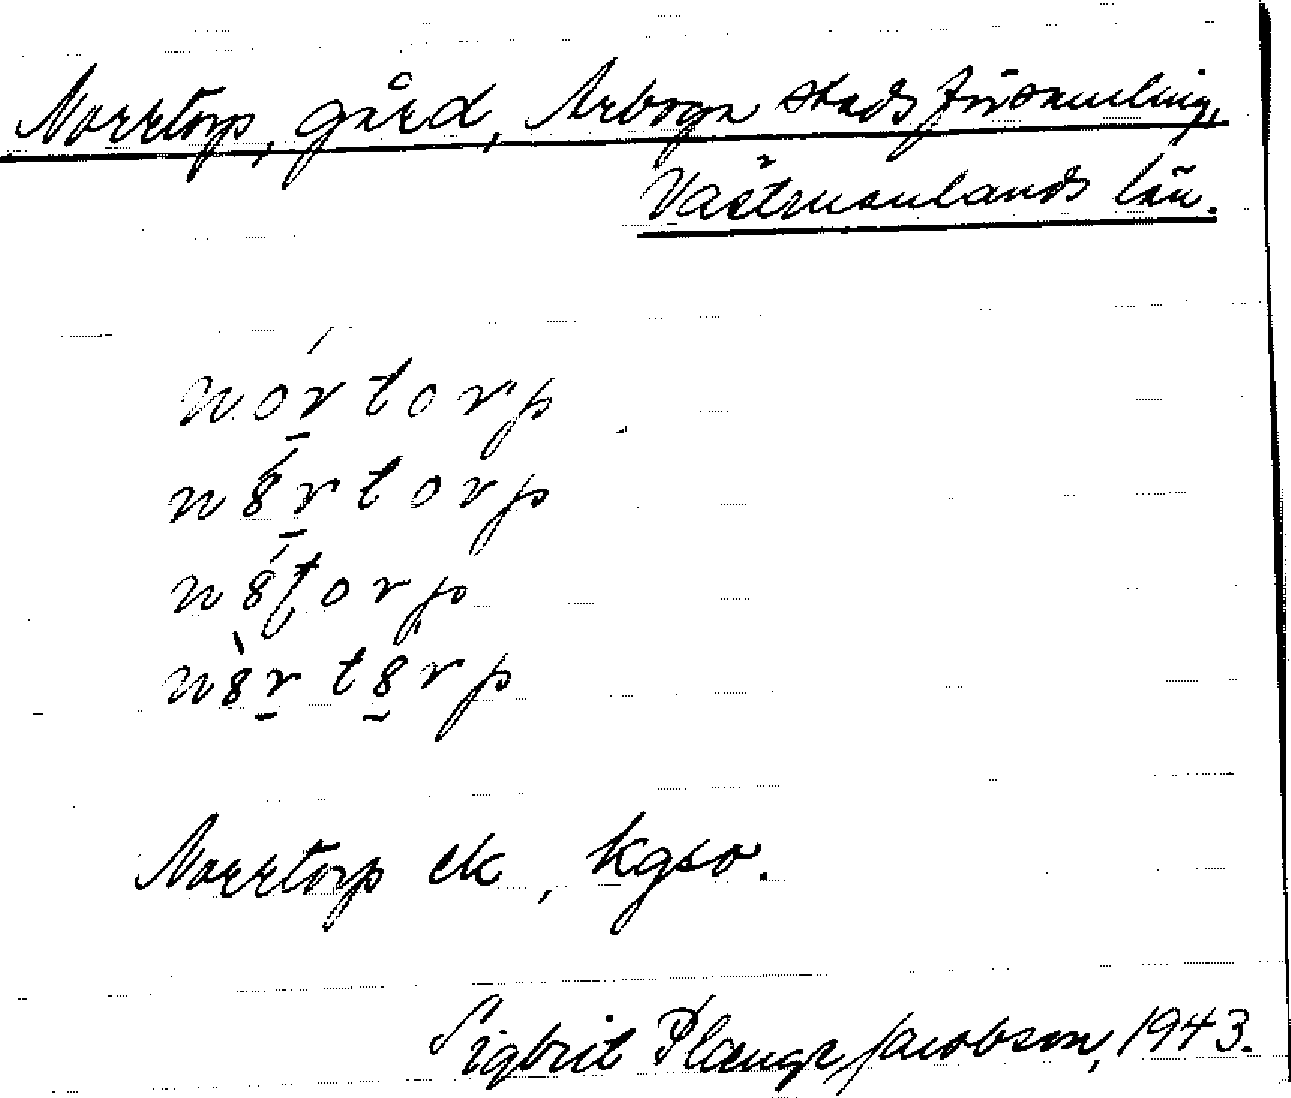 Norrtorp, gård, Arboga stadsförsamling,
Västmanlands län.
nór̲torp
n8́r̲torp
n8́ʈorp
n8̀r̲t8̰rp
Norrtorp ek, kgso.
Sigbrit Plænge Jacobson, 1943.